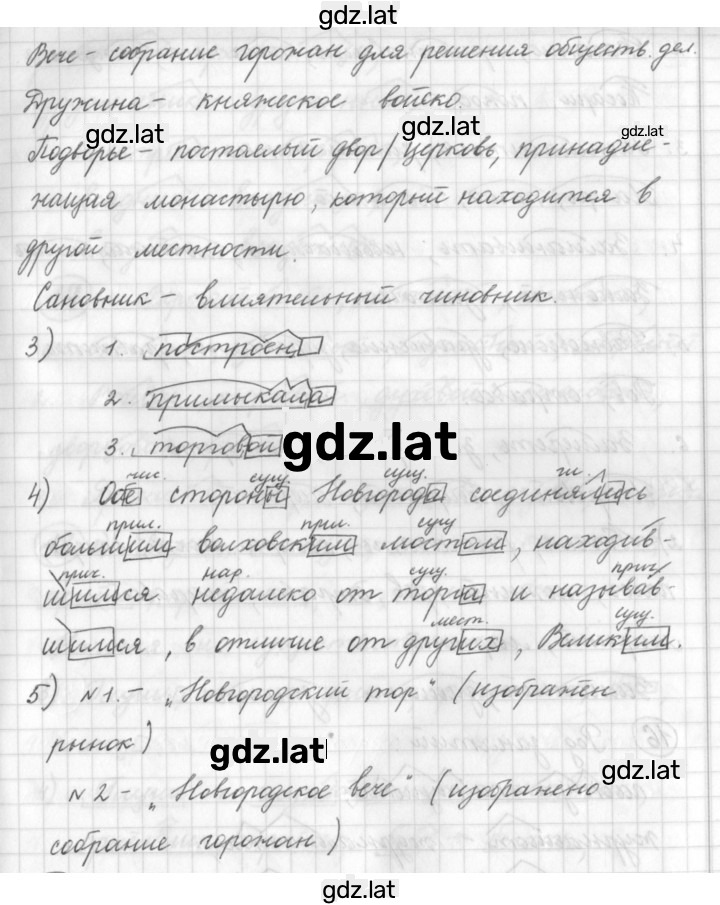 gdz.lat
Вече - собрание горожан для решения обществ. дел.
Дружина - княжеское войско.
gdz.lat gdz.lat gdz.lat
Подворье - постоялый двор/церковь, принадле-
жащая монастырю, который находится в
другой местности.
Сановник - влиятельный чиновник.
3) 1. построен
2. примыкала
3. торговой
gdz.lat
чис. сущ. сущ. гл.
4) Обе стороны Новгорода соединялись
прил. прил. сущ
большим волховским мостом, находив-
прич. нар. сущ. прич
шимся недалеко от торга и называв
мест. сущ.
шимся, в отличие от других, Великим.
5) N1. - "Новгородский тор" (изображён
рынок)
gdz.lat
gdz.lat
N2 - "Новгородское вече" (изображено
собрание горожан)
gdz.lat